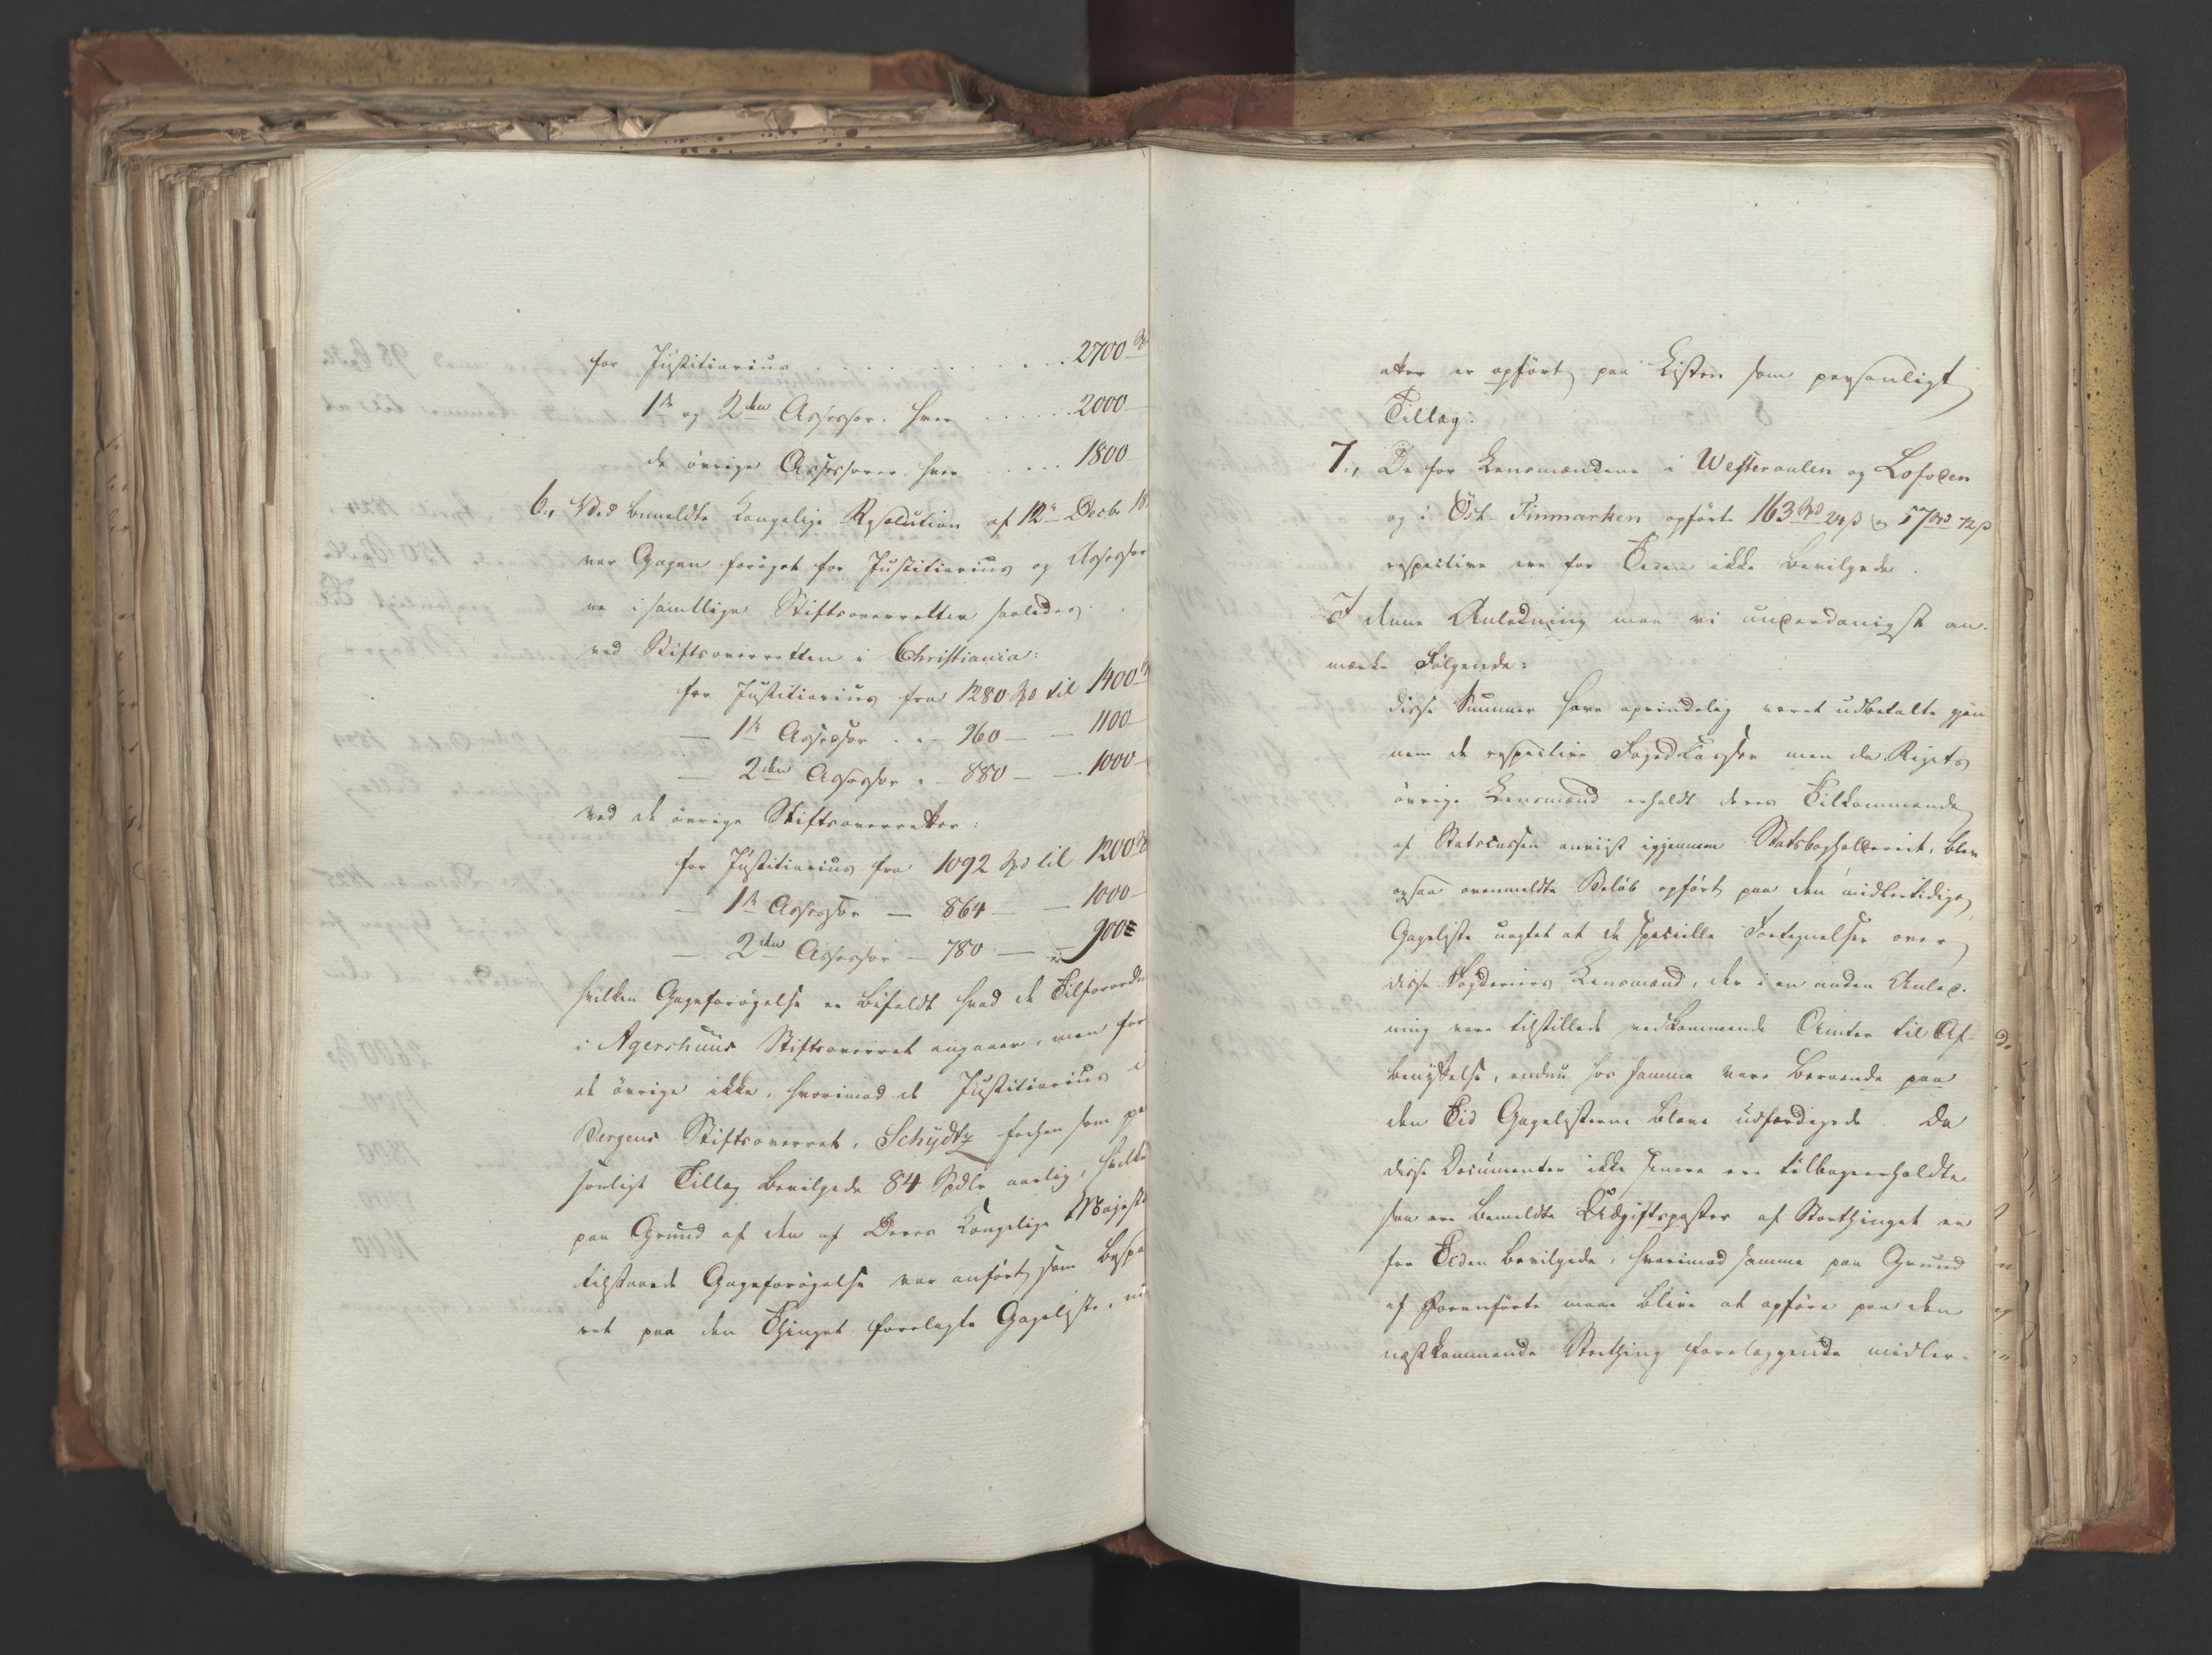 for Justitiarius . . . . . . . . . 2700 Spd
1ste og 2den Assessor, hver . . . . . 2000 —
de övrige Assessorer, hver . . . . . 1800 —
6., Ved bemeldte Kongelige Resolution af 12te Decbr 18
var Gagen foröget for Justitiarius og Assessorer
ne i samtlige Stiftsoverretter saaledes:
ved Stiftsoverretten i Christiania:
for Justitiarius fra 1280 Spd til 1400
— 1ste Assessor . . — 960 — — 1100 —
— 2den Assessor . — 880 — — 1000 —
ved de övrige Stiftsoverretter:
for Justitiarius fra 1092 Spd til 1200
— 1ste Assessor — 864 — — 1000 —
— 2den Assessor — 780 — — 900 =
hvilken Gageforögelse er bifaldt hvad de Tilforordne
i Agershuus Stiftsoverret angaaer, men for
de övrige ikke, hvorimod de Justitiarius i
Bergens Stiftsoverret, Schydtz forhen som per
sonligt Tillæg bevilgede 84 Spdlr aarlig, hvilke
paa Grund af den af Deres Kongelige Majestæt
tilstaaede Gageforögelse var anfört som bespa
ret paa den Thinget forelagte Gageliste, nu
atter er opfört paa Listen som personligt
Tillæg.
7., De for Lensmændene i Westeraalen og Lofoden
og i Öst-Finmarken opförte 163 Spd 24 β og 57 Spd 72 β
respective ere for Tiden ikke bevilgede.
I denne Anledning maa vi underdanigst an-
mærke Fölgende:
disse Summer have oprindelig været udbetalte gjen-
nem de respective Fogedcasser men da Rigets
övrige Lensmænd erholdt deres Tilkommende
af Statscassen anviist igjennem Statsbogholderiet, blev
ogsaa ovenmeldte Belöb opfört paa den midlertidige
Gageliste uagtet at de specielle Fortegnelser over
disse Fogderiers Lensmænd, der i en anden Anled-
ning vare tilstillede vedkommende Amter til Af-
benyttelse, endnu hos samme vare beroende paa
den Tid Gagelisterne bleve udfærdigede. Da
disse Documenter ikke senere ere tilbageerholdte
saa ere bemeldte Udgiftsposter af Storthinget ei
for Tiden bevilgede, hvorimod samme paa Grund
af Foranförte maae blive at opföre paa den
næstkommende Storthing forelæggende midler-